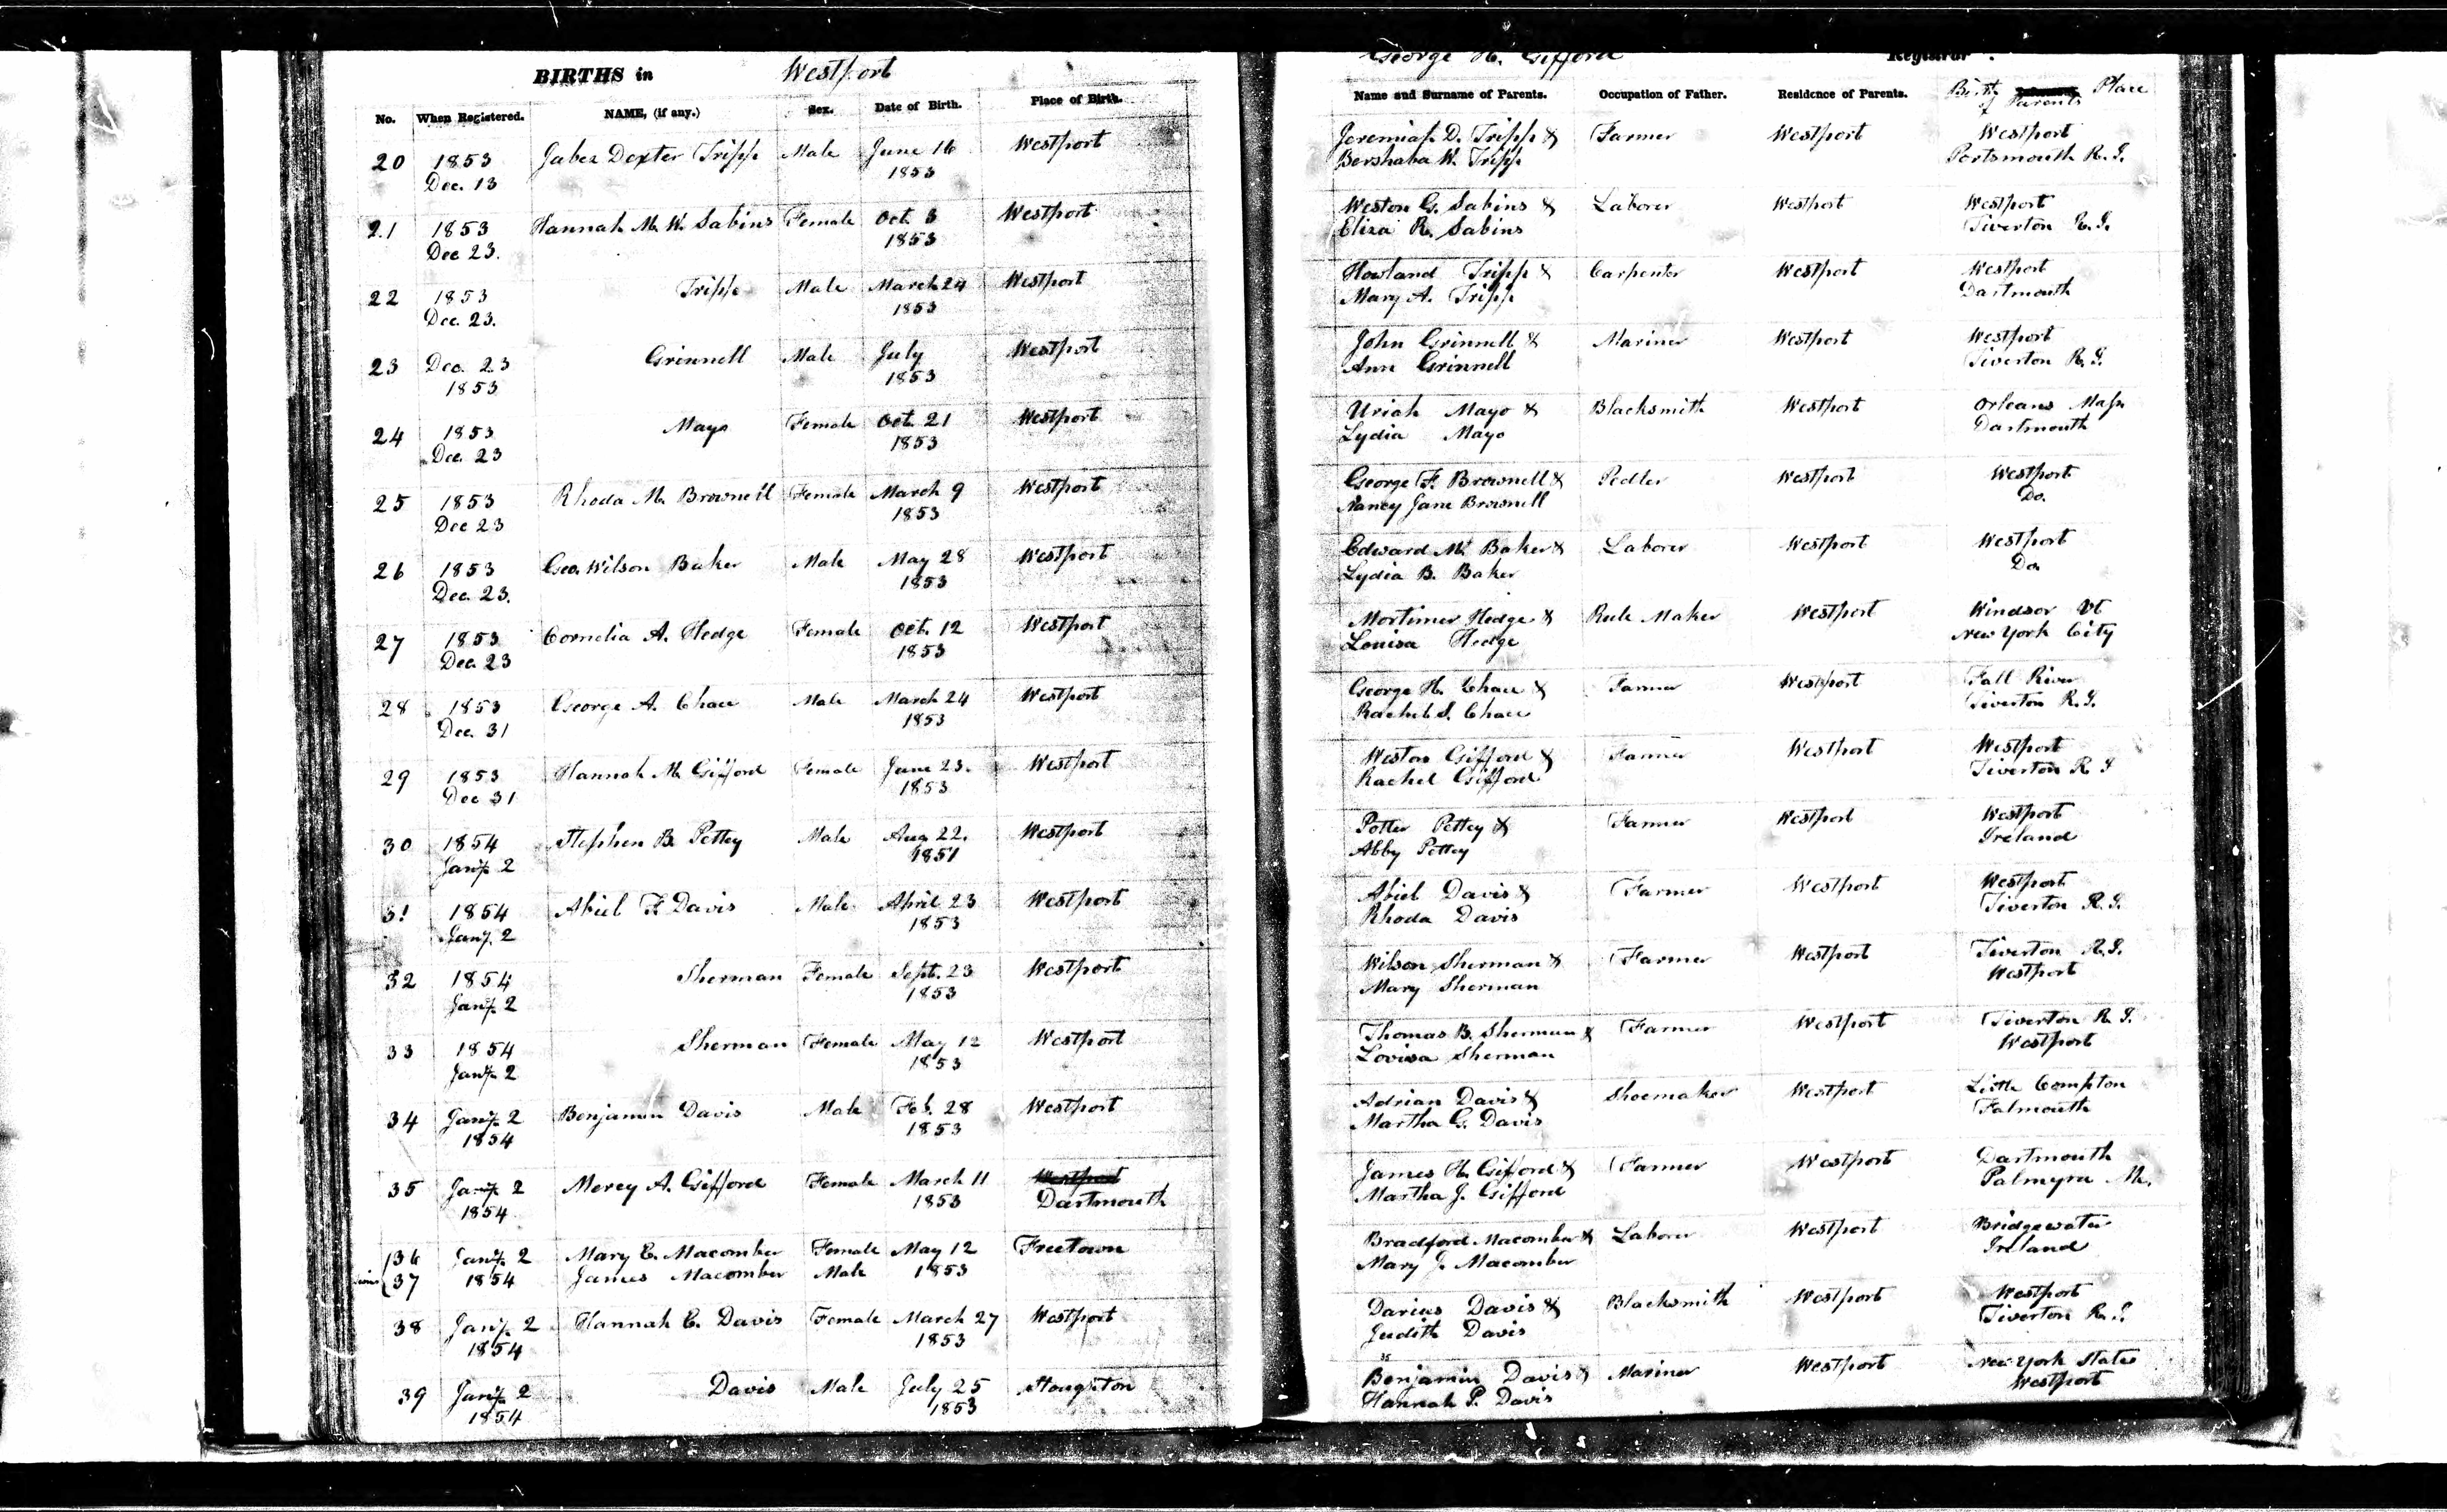 BIRTHS in Westport
No. When Registered. NAME, (if any.) Sex. Date of Birth. Place of Birth.
20 1853 Jabez Dexter Tripp Male June 16 Westport
Dec. 13 1853
21 1853 Hannah M. W. Sabins Female Oct. 3 Westport
Dec 23. 1853
22 1853 Tripp Male March 24 Westport
Dec. 23. 1853
23 Dec. 23 Grinnell Male July Westport
1853 1853
24 1853 Mayo Female Oct. 21 Westport
Dec. 23 1853
25 1853 Rhoda M. Brownell Female March 9 Westport
Dec 23 1853
26 1853 Geo. Wilson Baker Male May 28 Westport
Dec. 23. 1853
27 1853 Cornelia A. Hedge Female Oct. 12 Westport
Dec. 23 1853
28 1853 George A. Chace Male March 24 Westport
Dec. 31 1853
29 1853 Hannah M. Gifford Female June 23. Westport
Dec 31 1853
30 1854 Stephen B. Pettey Male Aug 22. Westport
Jany. 2 1851
31 1854 Abiel F. Davis Male April 23 Westport
Jany. 2 1853
32 1854 Sherman Female Sept. 23 Westport
Jany. 2 1853
33 1854 Sherman Female May 12 Westport
Jany. 2 1853
34 Jany. 2 Benjamin Davis Male Feb. 28 Westport
1854 1853
35 Jany. 2 Mercy A. Gifford Female March 11 Westport
1854 1853 Dartmouth
36 Jany. 2 Mary E. Macomber Female May 12 Freetown
37 1854 James Macomber Male 1853
38 Jany. 2 Hannah E. Davis Female March 27 Westport
1854 1853
39 Jany. 2 Davis Male July 25 Stoughton
1854 1853
George H. Gifford Registrar.
Name and Surname of Parents. Occupation of Father. Residence of Parents. Birth Place
of Parents
Jeremiah D. Tripp & Farmer Westport Westport
Bershaba W. Tripp Portsmouth R. I.
Weston G. Sabins & Laborer Westport Westport
Eliza R. Sabins Tiverton R. I.
Howland Tripp & Carpenter Westport Westport
Mary A. Tripp Dartmouth
John Grinnell & Mariner Westport Westport
Ann Grinnell Tiverton R. I.
Uriah Mayo & Blacksmith Westport Orleans Mass
Lydia Mayo Dartmouth
George F. Brownell & Pedler Westport Westport
Nancy Jane Brownell Do.
Edward M. Baker & Laborer Westport Westport
Lydia B. Baker Do.
Mortimer Hedge & Rule Maker Westport Windsor Vt
Louisa Hedge New York City
George H. Chace & Farmer Westport Fall River
Rachel S. Chace Tiverton R. I.
Weston Gifford & Farmer Westport Westport
Rachel Gifford Tiverton R I
Potter Pettey & Farmer Westport Westport
Abby Pettey Ireland
Abiel Davis & Farmer Westport Westport
Rhoda Davis Tiverton R. I.
Wilson Sherman & Farmer Westport Tiverton R. I.
Mary Sherman Westport
Thomas B. Sherman & Farmer Westport Tiverton R. I.
Lovisa Sherman Westport
Adrian Davis & Shoemaker Westport Little Compton
Martha G. Davis Falmouth
James H. Gifford & Farmer Westport Dartmouth
Martha J. Gifford Palmyra Me.
Bradford Macomber & Laborer Westport Bridgewater
Mary J. Macomber Ireland
Darius Davis & Blacksmith Westport Westport
Judith Davis Tiverton R. I.
Benjamin Davis & Mariner Westport New York State
Hannah P. Davis Westport